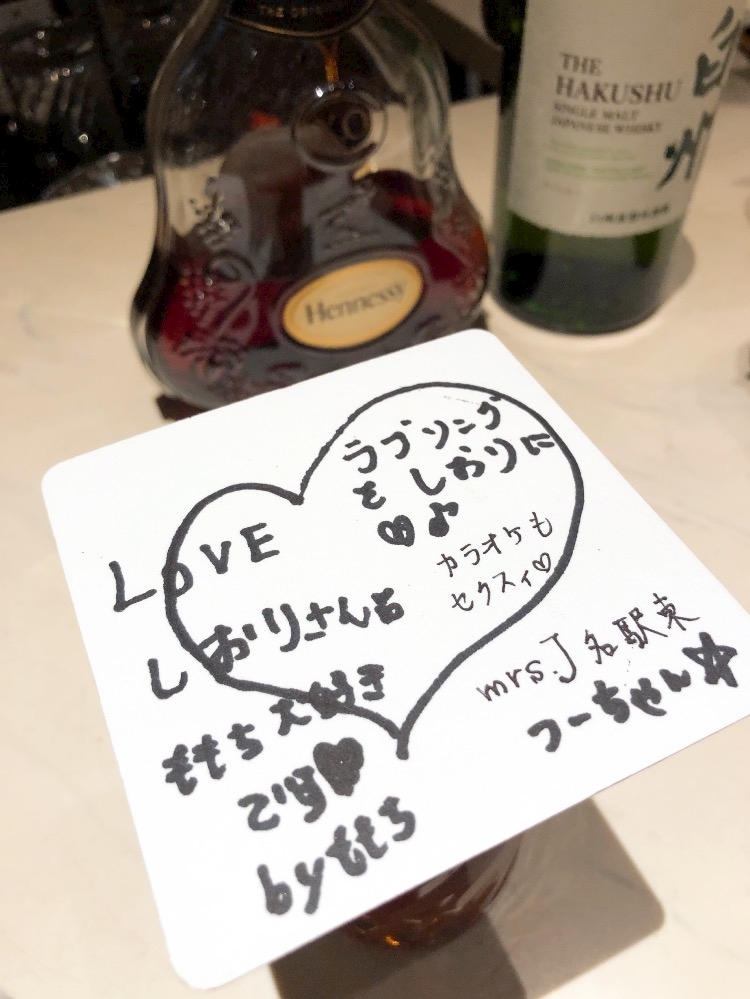 THE
HAKUSHU
SINGLE MALT
JAPANESE WHISKY
Hennessy
XO
ラブソング
を しおりに
♡♪
カラオケも
セクスィ♡
LOVE
しおりさんも
ももち大好き
です♥
byももち
mrs.J 名駅東
つーちゃん☆